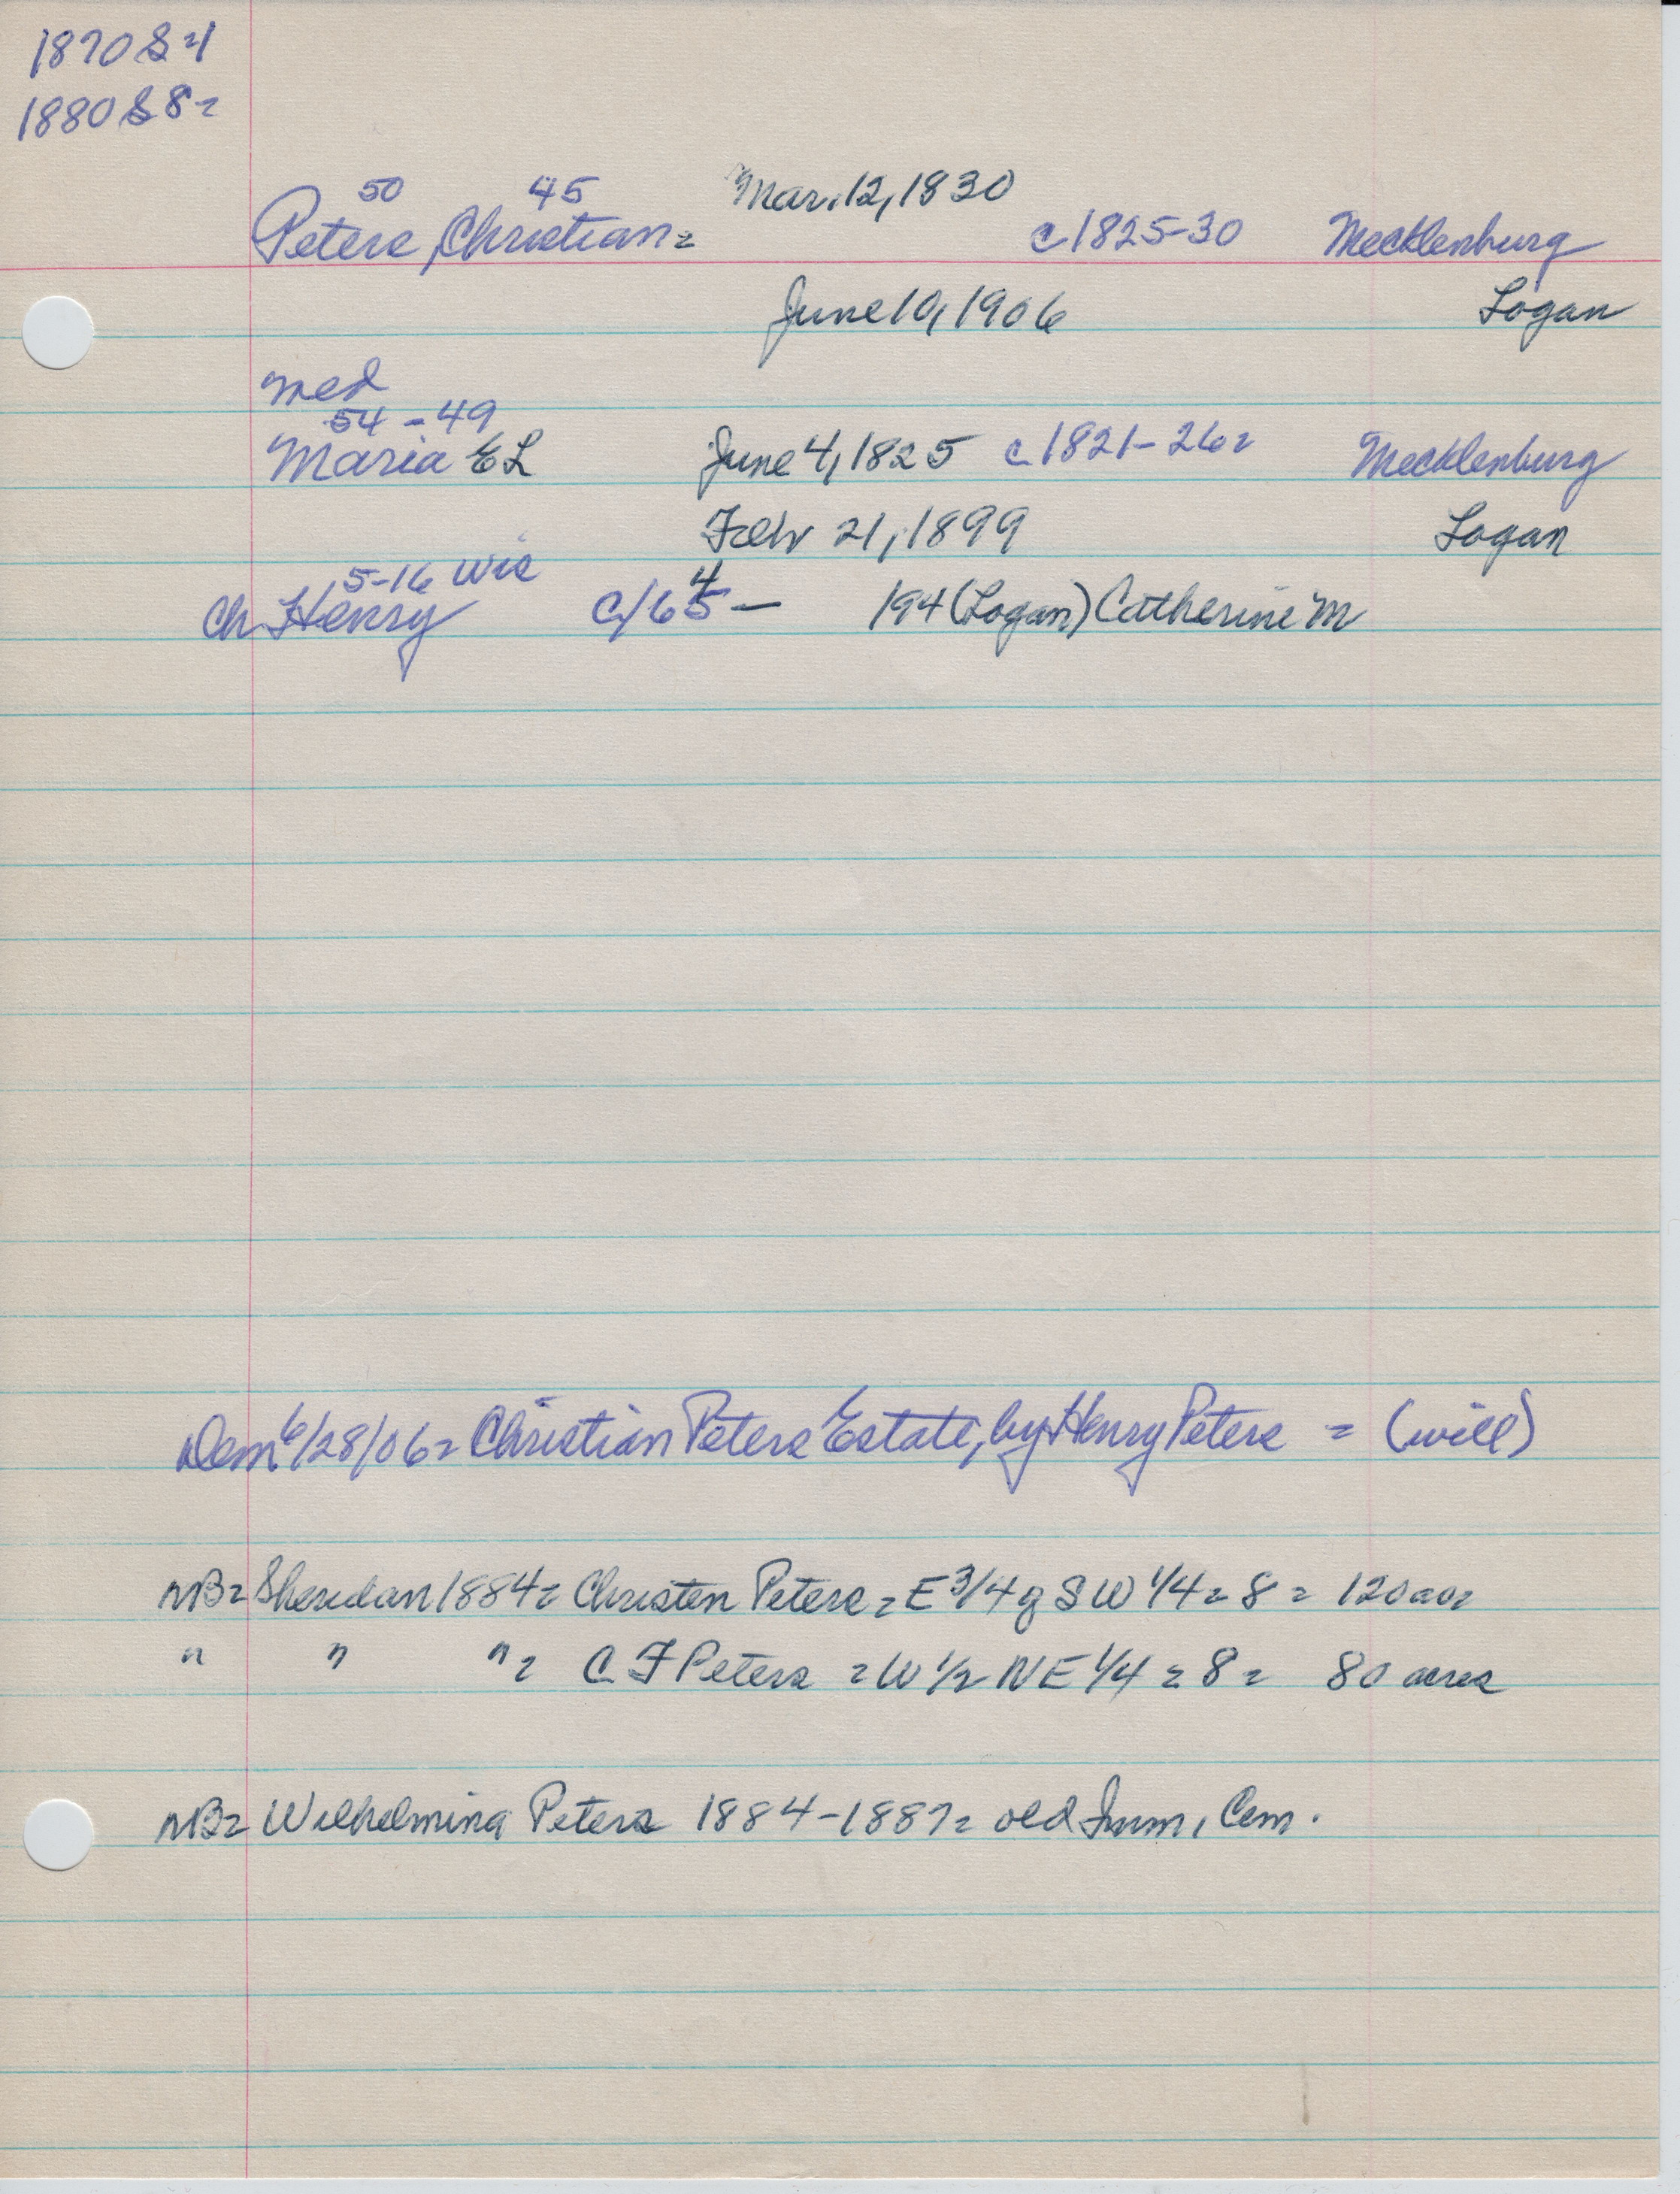 1870 S =1
1880 S 8 =
50 45 Mar. 12, 1830
Peters, Christian = c 1825-30 Mecklenburg
June 10, 1906 Logan
med
54 - 49
Maria E L June 4, 1825 c 1821-26 = Mecklenburg
Febr 21, 1899 Logan
5-16 Wis 4
Ch Henry c/65 — 194 (Logan) Catherine M
Dem 6/28/06 = Christian Peters Estate, by Henry Peters = (will)
NB = Sheridan 1884 = Christen Peters = E 3/4 of SW 1/4 = 8 = 120 ac =
" " " = C F Peters = W 1/2 NE 1/4 = 8 = 80 acres
NB = Wilhelmina Peters 1884-1887 = old Imm. Cem.